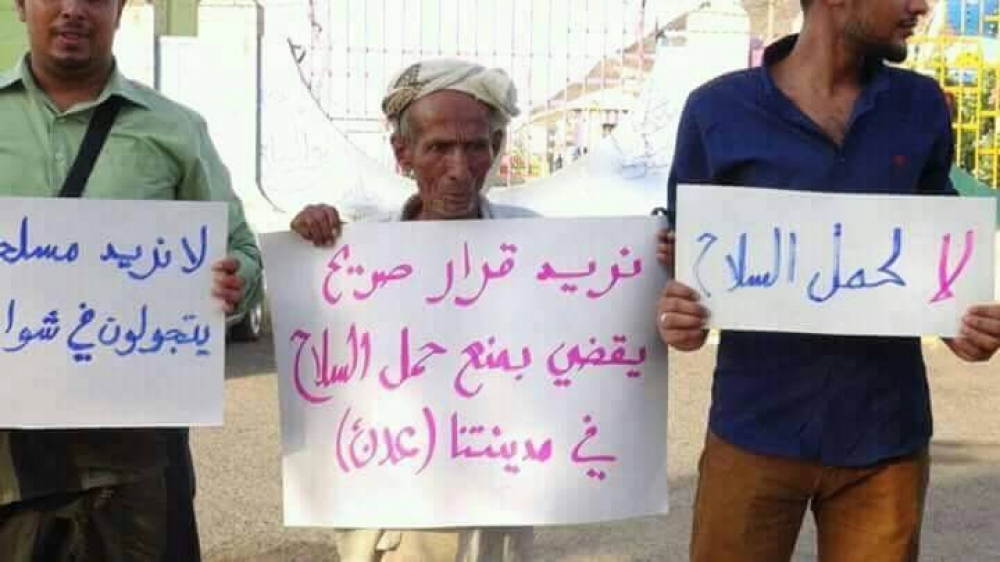 نريد قرار صريح
يقضي بمنع حمل السلاح
في مدينتنا (عدن)
لا لحمل السلاح
لا نريد
يتجولون في